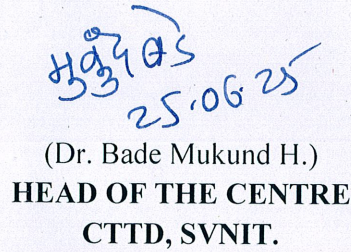 मुकुंद बडे
25.06.25
(Dr. Bade Mukund H.)
HEAD OF THE CENTRE
CTTD, SVNIT.